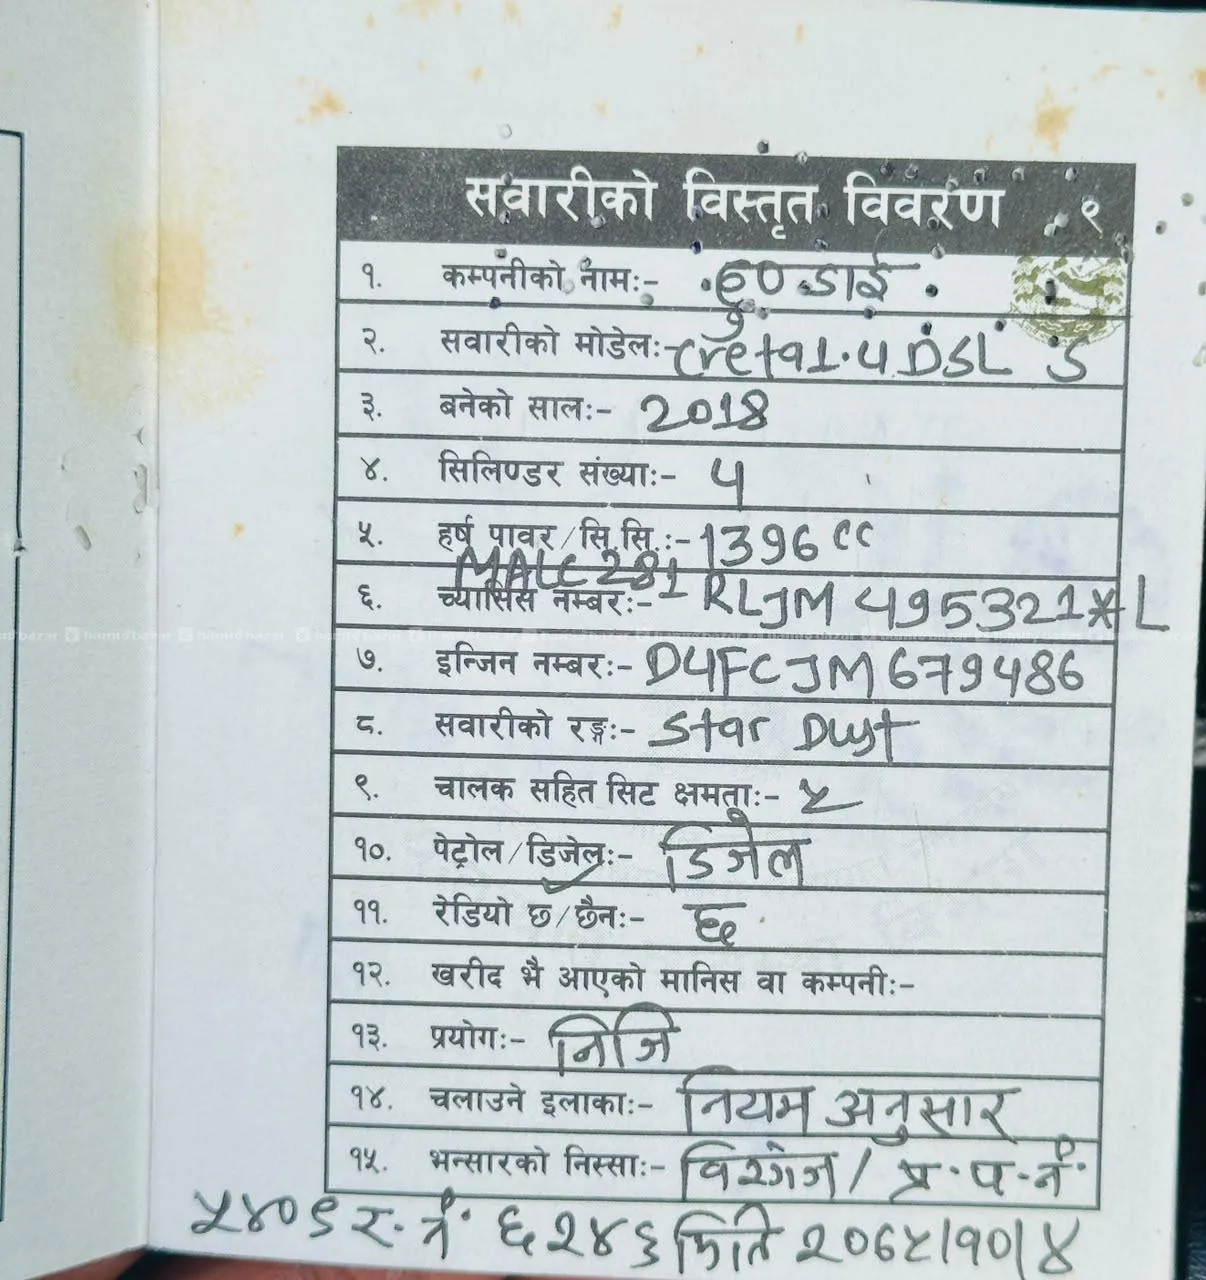 सवारीको विस्तृत विवरण ९
१. कम्पनीको नामः- हुण्डाई
२. सवारीको मोडेलः- Creta 1.4 DSL S
३. बनेको सालः- 2018
४. सिलिण्डर संख्याः- 4
५. हर्ष पावर/सि.सि.ः- 1396 CC
६. च्यासिस नम्बरः- MALC281RLJM495321*L
७. इन्जिन नम्बरः- D4FCJM679486
८. सवारीको रङ्गः- Star Dust
९. चालक सहित सिट क्षमताः- ५
१०. पेट्रोल/डिजेलः- डिजेल
११. रेडियो छ/छैनः- छ
१२. खरीद भै आएको मानिस वा कम्पनीः-
१३. प्रयोगः- निजि
१४. चलाउने इलाकाः- नियम अनुसार
१५. भन्सारको निस्साः- विरगंज/प्र.प.नं.
५४०९ र.नं. ६२४६ मिति २०७५।१०।४